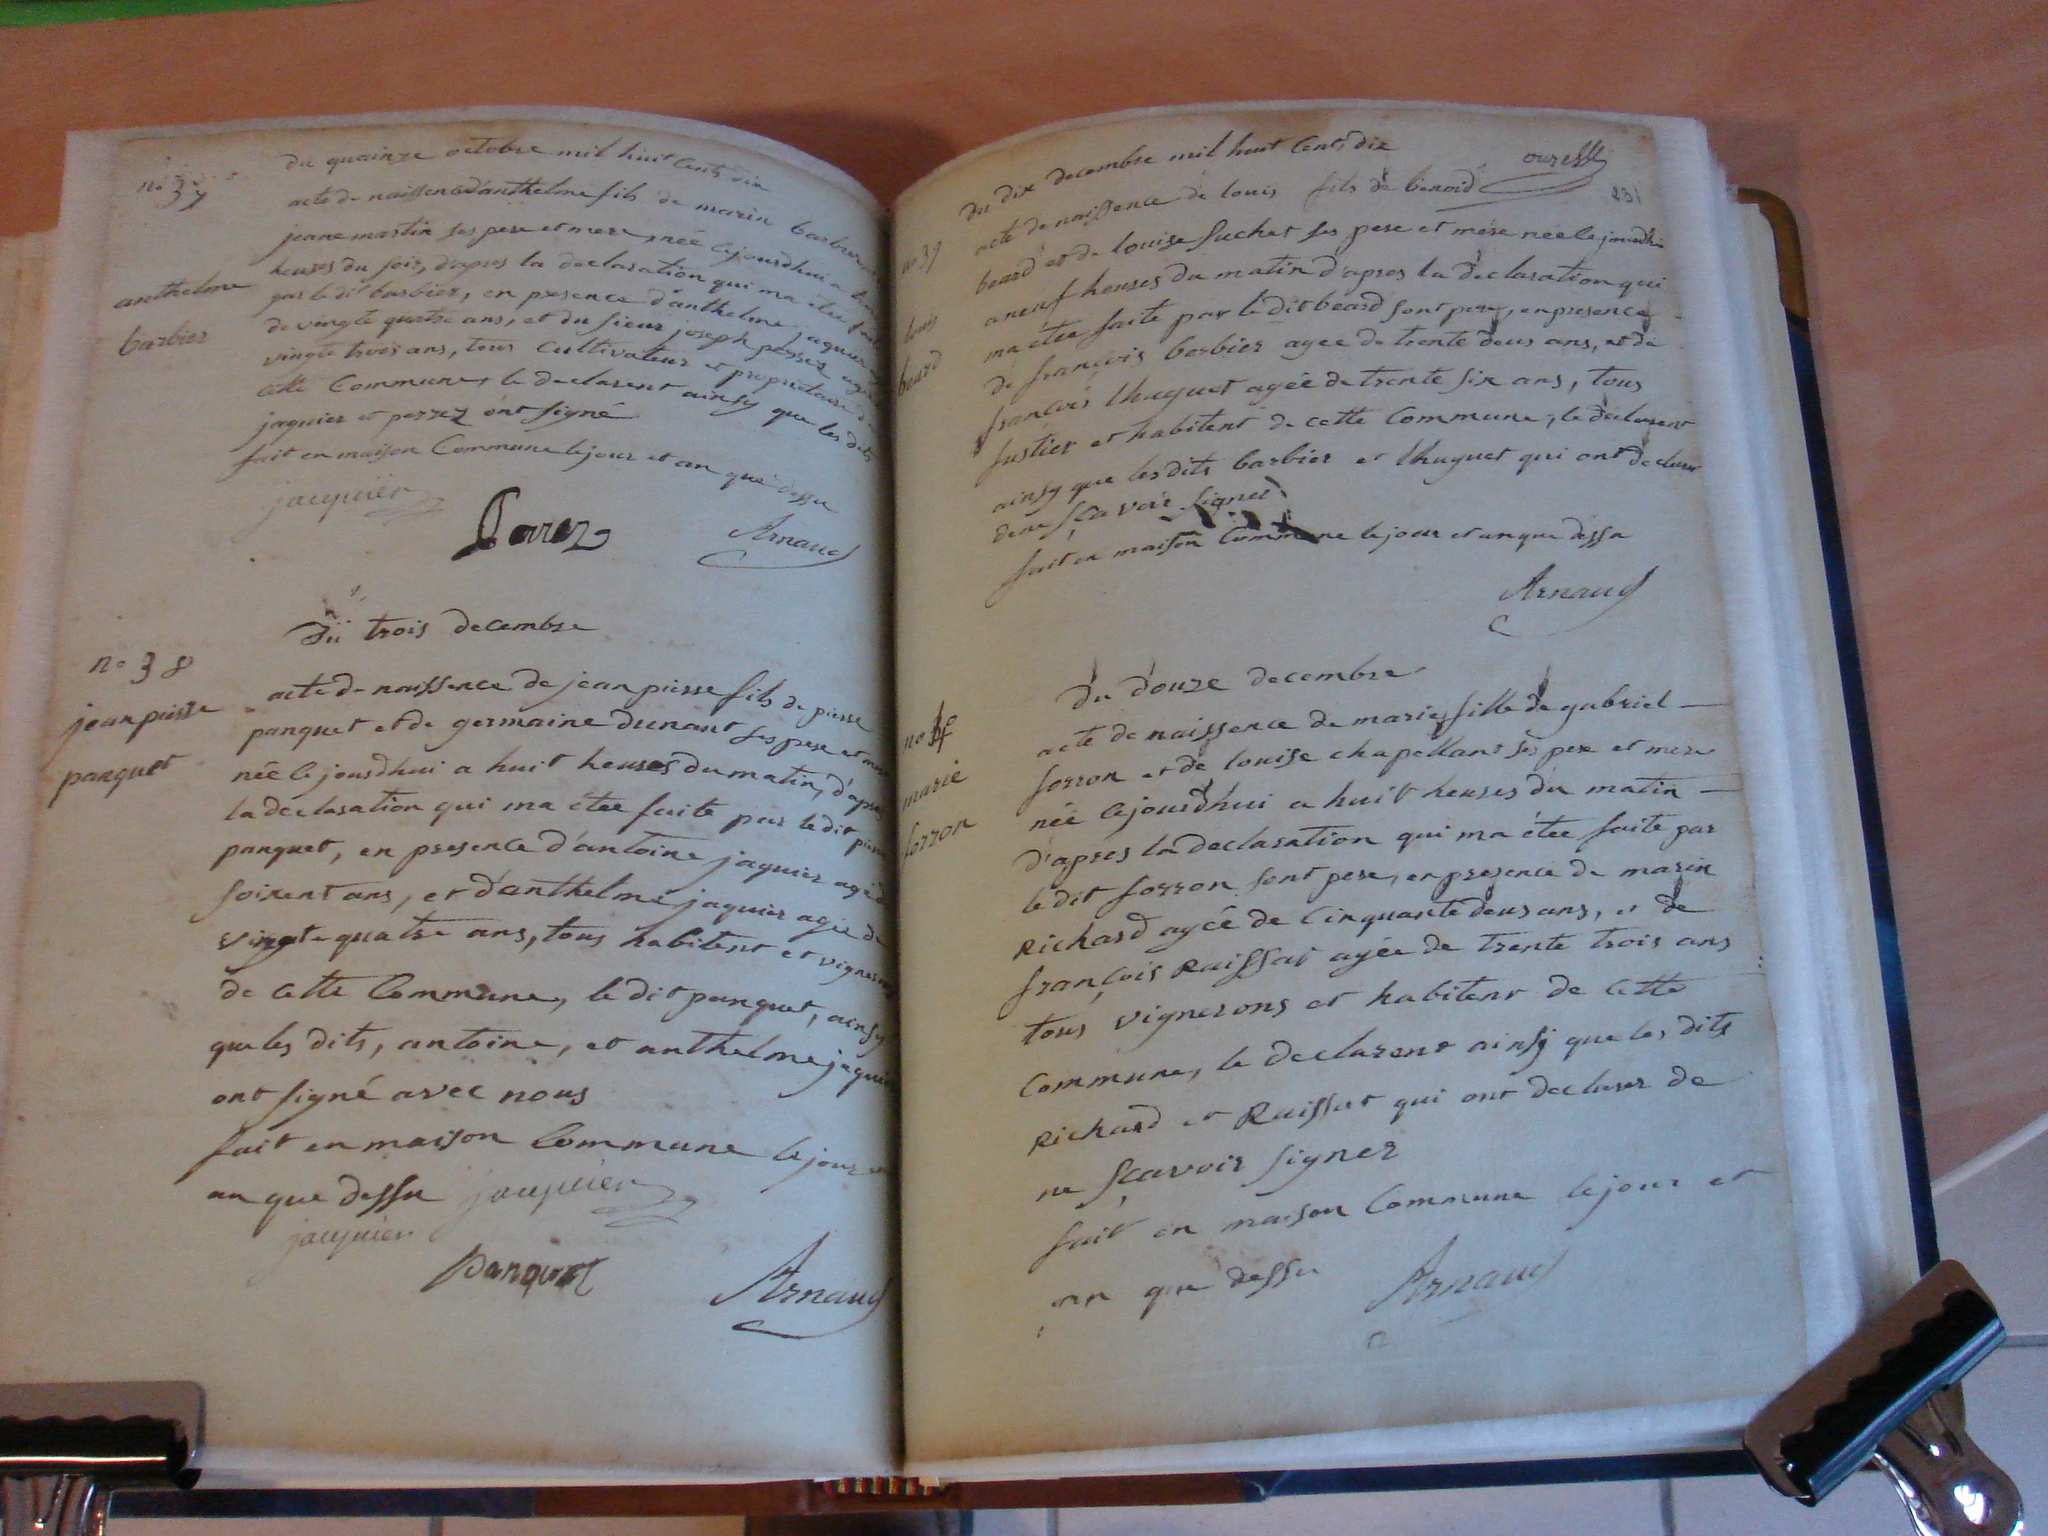 no 37
du quainze octobre mil huit Cents dix
acte de naissence d'anthelme fils de marin barbier
jeane martin ses pere et mere, née lejourdhui a
heures du soir, d'apres la declaration qui ma étee fait
anthelme
barbier
par le dit barbier, en presence d'anthelme jaquier
de vingte quatre ans, et du sieur joseph perrez agée
vingte trois ans, tous Cultivateur et proprietaire de
cette Commune, le declarent ainsy que les dits
jaquier et perrez ont signé
fait en maison Commune lejour et an que dessu
jacquier
Perrez
Arnaud
Du trois decembre
no 38
jean pierre
panquet
acte de naissence de jean pierre fils de pierre
panquet et de germaine dunant ses pere et mere
née lejourdhui a huit heures du matin, d'apres
la declaration qui ma étee faite par ledit pierre
panquet, en presence d'antoine jaquier agé de
soixent ans, et d'anthelme jaquier agée de
vingte quatre ans, tous habitent et vignerons
de cette Commune, le dit panquet, ainsy
que les dits, antoine, et anthelme jaquier
ont signé avec nous
fait en maison Commune lejour et
an que dessu jacquier
jacquier
panquet
Arnaud
du dix decembre mil huit Cents dix
231
no 39
louis
beard
acte de naissence de louis fils de benoid
beard et de louise suchet ses pere et mére née lejourdhui
a neuf heures du matin d'apres la declaration qui
ma étee faite par le dit beard sont pere, en presence
de françois barbier agee de trente deus ans, et de
françois lhuguet agée de trente six ans, tous
justier et habitent de cette Commune, le declarent
ainsy que les dits barbier et lhuguet qui ont declarer
de ne sçavoir signer
fait en maison Commune lejour et an que dessu
Arnaud
du douze decembre
no
marie
forron
acte de naissence de marie, fille de gabriel
forron et de louise chapellant ses pere et mere
née lejourdhui a huit heures du matin
d'apres la declaration qui ma étee faite par
le dit forron sont pere, en presence de marin
Richard agée de Cinquante deus ans, et de
françois Raissat agée de trente trois ans
tous vignerons et habitent de Cette
Commune, le declarent ainsy que les dits
Richard et Raissat qui ont declarer de
ne sçavoir signer
fait en maison Commune lejour et
an que dessu
Arnaud